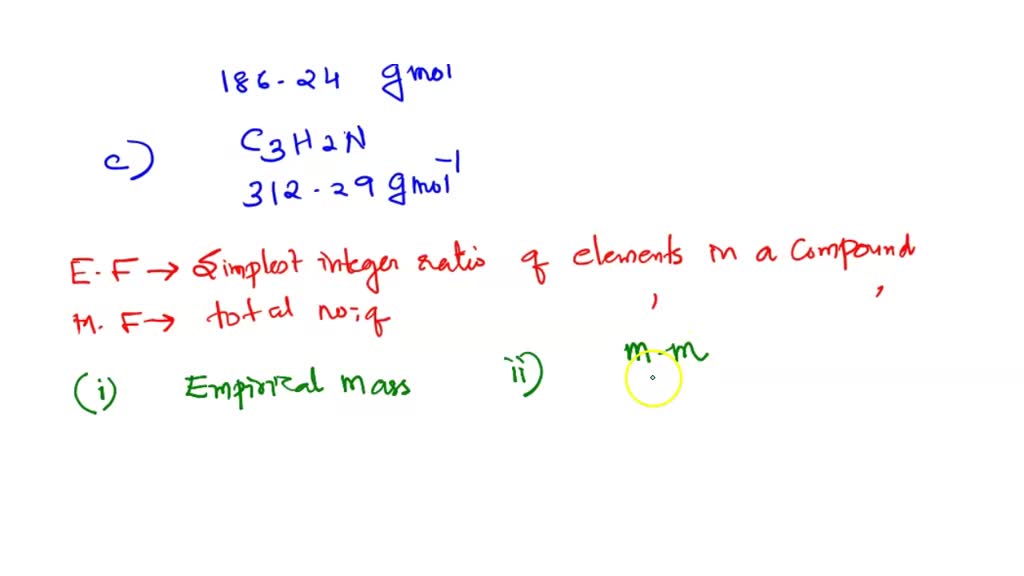 186.24 gmol
c) C3H2N
312.29 gmol-1
E.F → Simplest integer ratio of elements in a compound
M.F → total no; of , ,
(i) Empirical mass ii) m.m